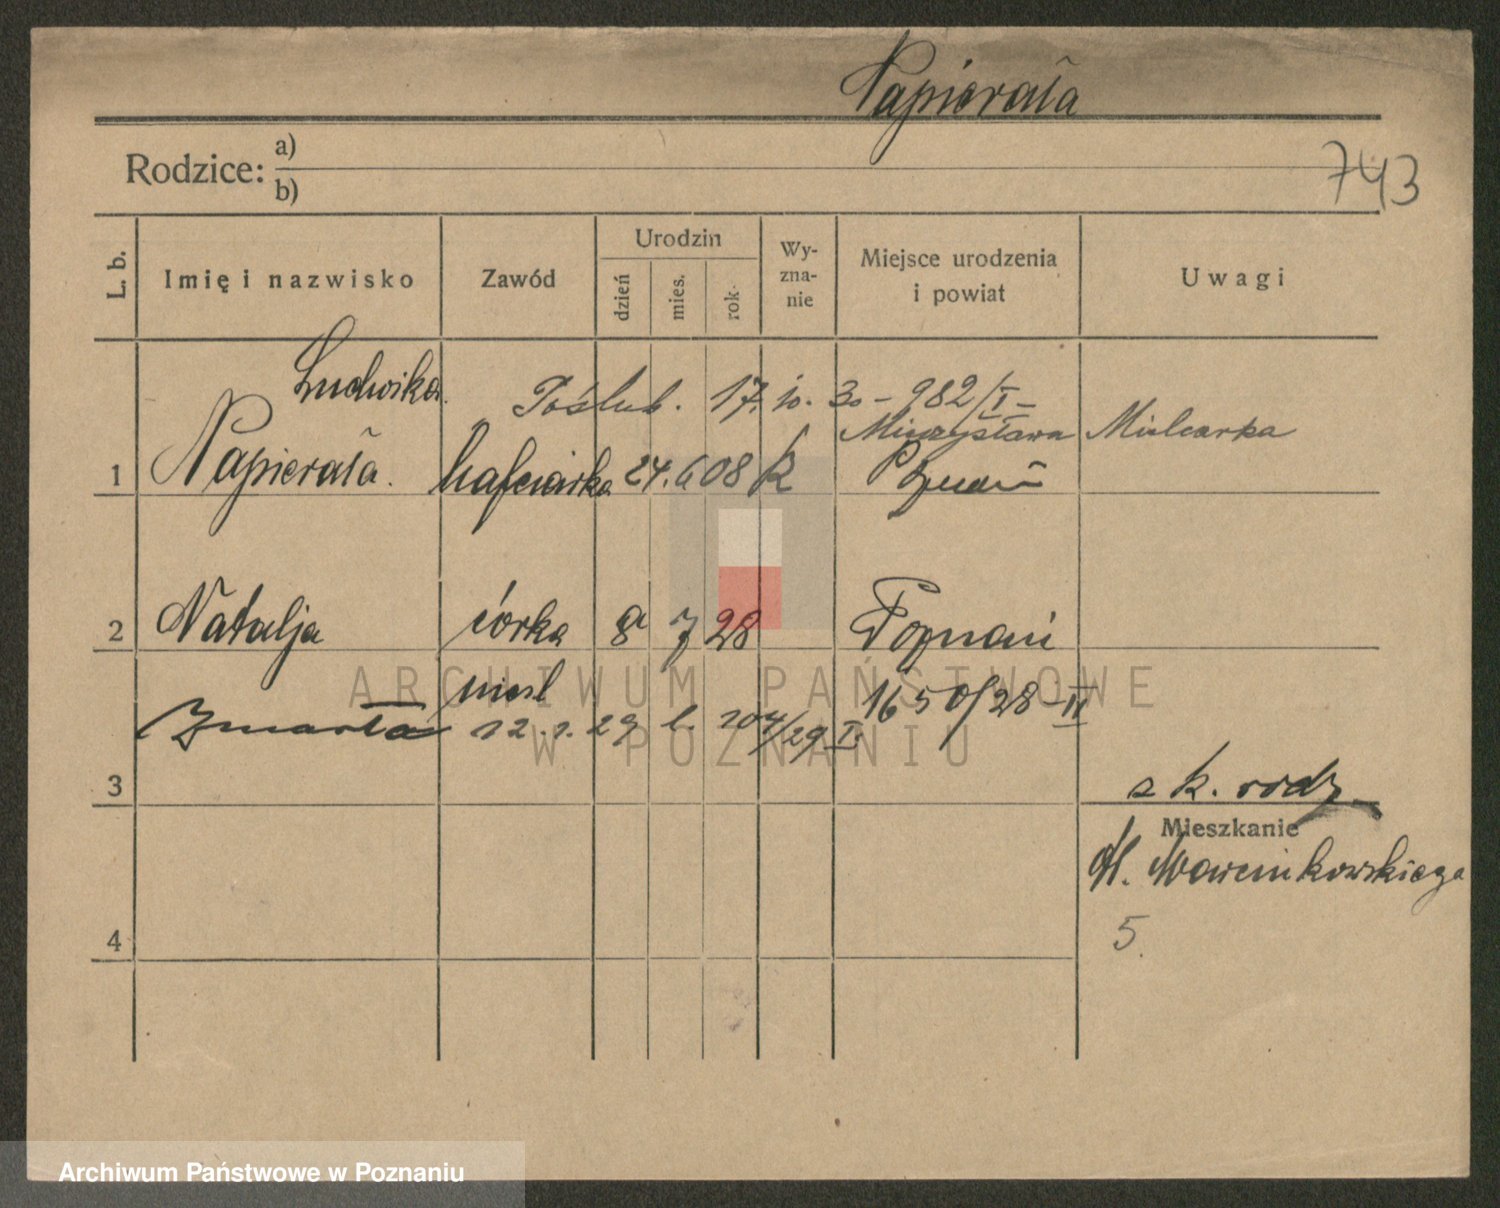 Papierała
Rodzice: a)
b)
743
L. b.
Imię i nazwisko
Zawód
Urodzin
dzień
mies.
rok
Wy-
zna-
nie
Miejsce urodzenia
i powiat
Uwagi
Ludwika
Poślub. 17. 10. 30 – 982/I –
Mieczysława Mielcarka
1 Papierała. hafciarka 24. 6 08 k Poznań
2 Natalja córka 8 7 28 Poznań
nieśl 1650/28 II
Zmarła 12. 1. 29 l. 104/29 I.
3
z k. rodz
Mieszkanie
Al. Marcinkowskiego
5.
4
ARCHIWUM PAŃSTWOWE
W POZNANIU
Archiwum Państwowe w Poznaniu